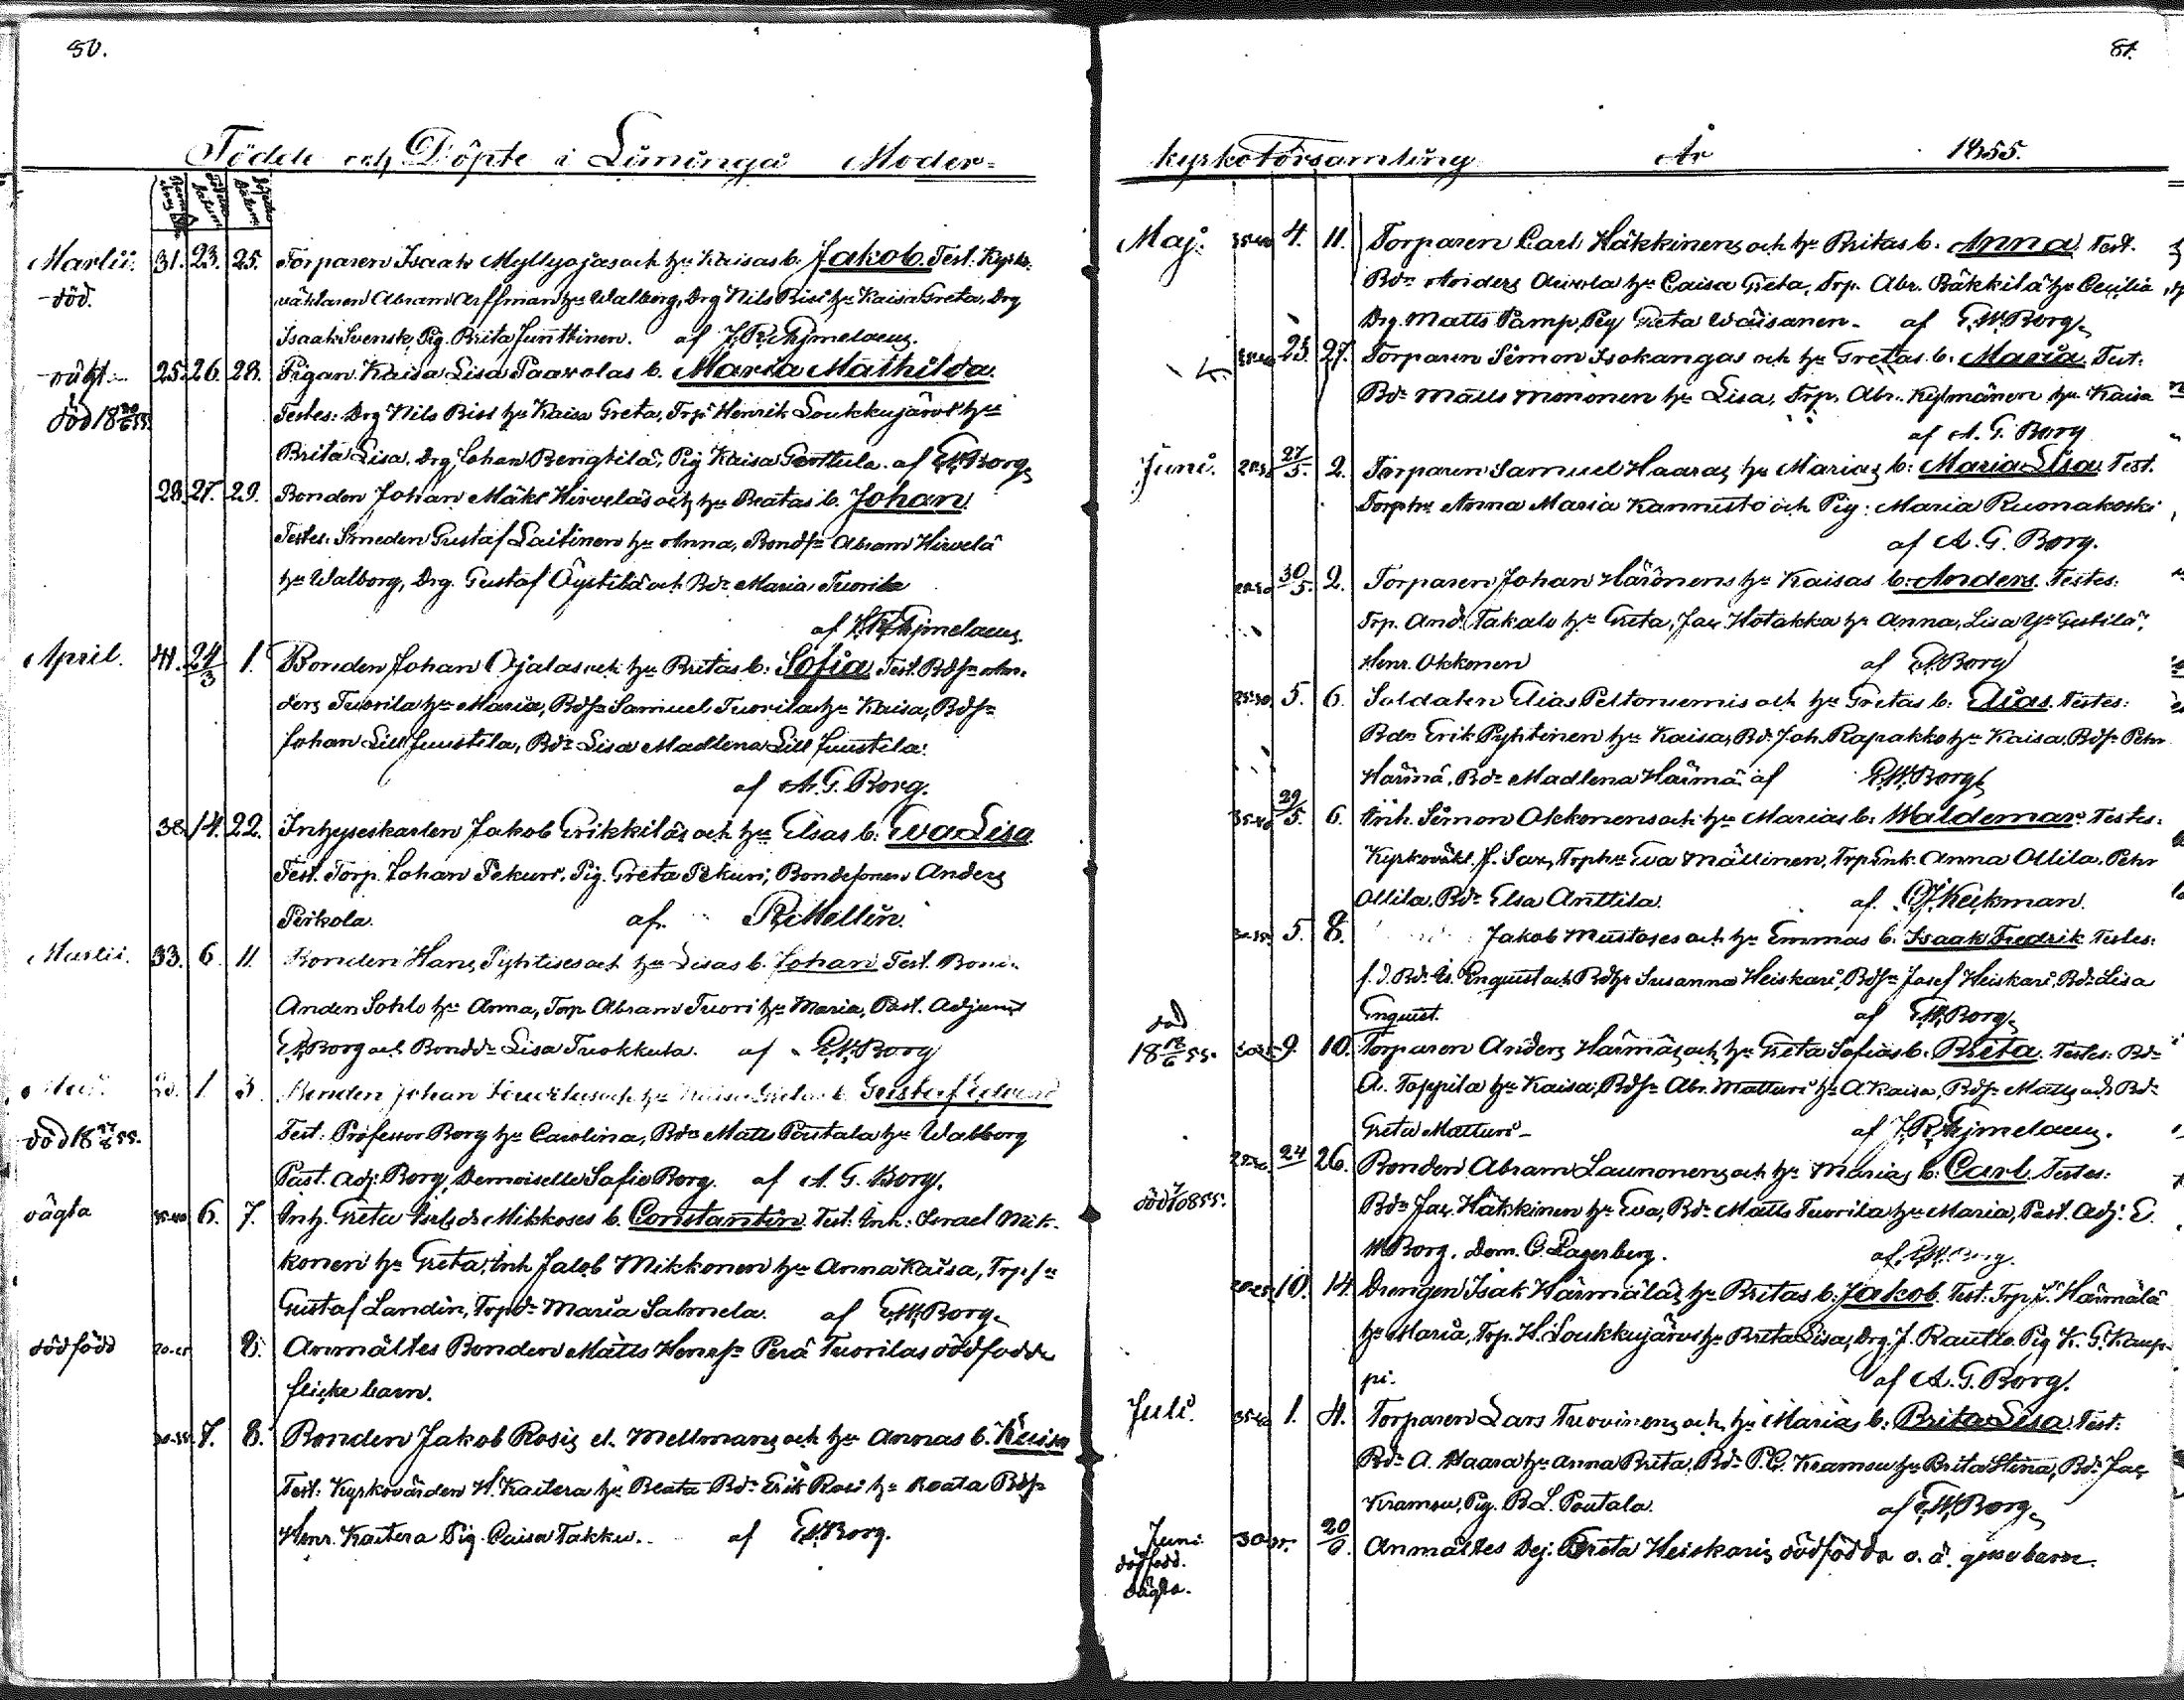 80.
Födde och Döpte i Limingå Moder-
Martii. 31. 23. 25. Torparen Isaak Myllyojas och hu Kaisas b. Jakob. Test. Kyrko-
död. väktaren Abram Arffman hu Walborg, Drg Nils Risi hu Kaisa Greta, Drg
Isaak Svensk, Pig. Brita Junttinen. af J.R. Hjmelaeus.
oäkt. 25. 26. 28. Pigan Kaisa Lisa Paavolas b. Maria Mathilda.
död 18 55. Testes: Drg Nils Risi hu Kaisa Greta, Trp Henrik Loukkujärvi hu
Brita Lisa, Drg Johan Bengtilä, Pig Kaisa af E.W. Borg
28. 27. 29. Bonden Johan Mäki Hirveläs och hu Beatas b. Johan.
Testes: Smeden Gustaf Laitinen hu Anna, Bondes. Abram Hirvelä
hu Walborg, Drg. Gustaf Öystilä och Bdr Maria Tuorila
af J.R. Hjmelaeus.
April. 41. 24/3 1. Bonden Johan Ojalas och hu Britas b: Sofia. Test. Bdsn An-
ders Tuorila hu Maria, Bdsn Samuel Tuorila hu Kaisa, Bdsn
Johan Lill Juustila, Bdr Lisa Madlena Lill Juustila.
af A. G. Borg.
38. 14. 22. Inhyseskarlen Jakob Erikkiläs och hu Elsas b: Eva Lisa.
Test. Torp. Johan Pekuri, Pig. Greta Pekuri, Bondesonen Anders
Perkola. af Mellin.
Martii. 33. 6. 11. Bonden Hans Pyhtises och hu Lisas b. Johan. Test. Bond.
Anders Sohlo hu Anna, Torp. Abram Tuori hu Maria, Past. Adjunct
E.W. Borg och Bondd. Lisa Tuokkula. af E.W. Borg
1. 3. Bonden Johan och hu b. Gustaf Edvard
död 18 55. Test: Professor Borg hu Carolina, Bdn Matts Poutala hu Walborg
Past. Adj: Borg, Demoiselle Sofie Borg. af A. G. Borg.
oägta 35-40 6. 7. Inh. Greta Isrlsdr Mikkoses b. Constantin. Test: Inh: Israel Mik-
konen hu Greta, Inh Jakob Mikkonen hu Anna Kaisa, Trpsn
Gustaf Landin, Trpdr Maria Salmela. af E.W. Borg.
dödfödd 20-25 8. Anmältes Bonden Matts Henrsn Perä Tuorilas dödfödda
flicke barn.
30-35. 7. 8. Bonden Jakob Rosis el. Mellmans och hu Annas b. Kaisa
Test: Kyrkovärden H. Kaitera hu Beata Bdn Erik Rosi hu Beata Bdsn
Henr. Kaitera Pig. Caisa Takku. af E.W. Borg.
81.
kyrkoförsamling År 1855.
Maj. 35-40 4. 11. Torparen Carl Häkkinens och hu Britas b. Anna. Test.
Bdn Anders hu Caisa Greta, Trp. Abr. Räkkilä hu Cecilia
Drg. Matts Pamp, Pig Greta Wäisänen. af E.W. Borg.
23. 27. Torparen Simon Isokangas och hu Gretas b. Maria. Test:
Bdn Matts Mononen hu Lisa, Trp. Abr. hu Kaisa
af A. G. Borg
Juni. 27/5. 2. Torparen Samuel Haaras hu Marias b: Maria Lisa. Test.
Torphu Anna Maria Kannisto och Pig: Maria Ruonakoski
af A. G. Borg.
30/5. 2. Torparen Johan Härönens hu Kaisas b: Anders. Testes:
Trp. And. Takalo hu Greta, Jac. Hotakka hu Anna, Lisa
Henr. Okkonen af E.W. Borg
25-30. 5. 6. Soldaten Elias Peltoniemis och hu Gretas b. Elias. Testes:
Bdn Erik Pyhtinen hu Kaisa, Bd. Joh. Rapakko hu Kaisa, Bdsn Pehr
Härmä, Bdr Madlena Härmä. af E.W. Borg
35-40 29/5. 6. Inh. Simon Okkonens och hu Marias b. Waldemar. Testes:
Kyrkoväkt. J. Sax, Trphu Eva Mällinen, Trp.Enk. Anna Ollila, Pehr
Ollila, Bdr Elsa Anttila. af Keckman.
30-35. 5. 8. Jakob Mustoses och hu Emmas b. Isaak Fredrik. Testes:
f.d. Bdn Is. Enquist och Bdhu Susanna Heiskari, Bdsn Josef Heiskari, Bdr Lisa
Enquist. af E.W. Borg.
död 18 55. 9. 10. Torparen Anders Härmäs och hu Greta Sofias b. Brita. Testes: Bdn
A. Toppila hu Kaisa, Bdsn Abr. Matturi hu A. Kaisa, Bdsn Matts och Bdr
Greta Matturi. af J.R. Hjmelaeus.
24 26. Bonden Abram Launonens och hu Marias b: Carl. Testes:
Bdn Jac. Häkkinen hu Eva, Bdn Matts Tuorila hu Maria, Past. Adj: E.
W. Borg, Dem. C. Lagerberg. af E.W. Borg.
20-25. 10. 14. Drengen Isak Härmäläs hu Britas b. Jakob. Test: Trp J. Härmälä
hu Maria, Trp. H. Loukkujärvi hu Brita Lisa, Drg. J. Rautio. Pig K. G. Kaup-
pi. af A. G. Borg.
Juli. 35-40 1. 4. Torparen Lars Tuovinens och hu Marias b: Brita Lisa. Test:
Bdn A. Haara hu Anna Brita, Bdn P. C. Kramsu hu Brita Stina, Bdn Jac
Kramsu, Pig. B. L. Poutala. af E.W. Borg.
Juni. 30 20/6. Anmältes Dej: Greta Heiskaris dödfödda o. ä. gosse barn.
dödfödd.
oägta.